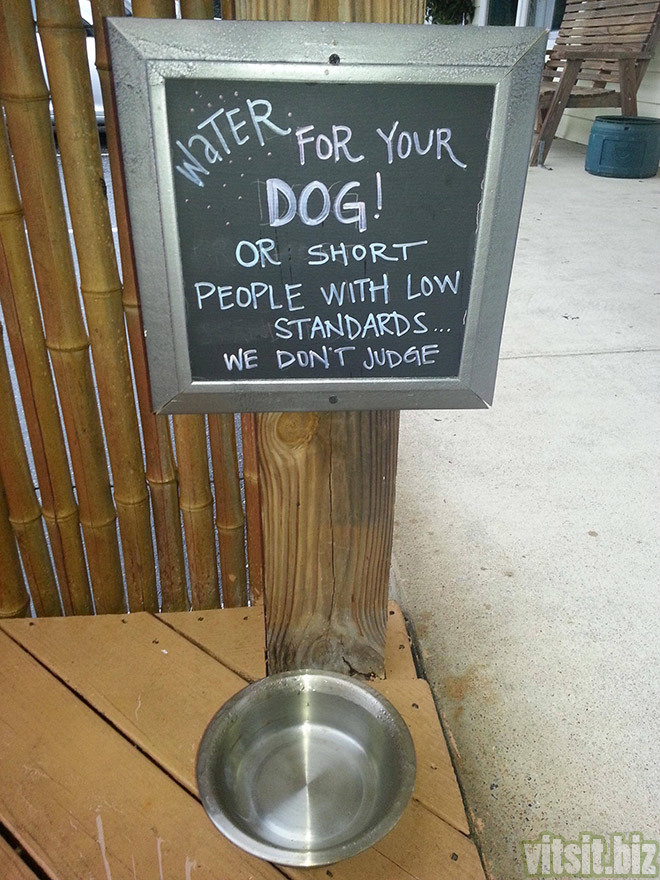 WaTER FOR YOUR
DOG!
OR SHORT
PEOPLE WITH LOW
STANDARDS...
WE DON'T JUDGE
vitsit.biz